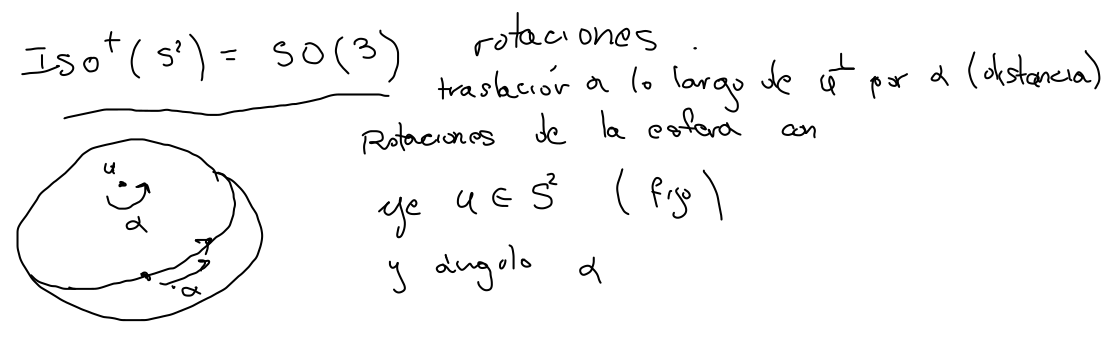 Iso⁺(S²) = SO(3) rotaciones.
traslación a lo largo de u^⊥ por α (distancia)
Rotaciones de la esfera con
eje u ∈ S² (fijo)
y ángulo α
u
α
α